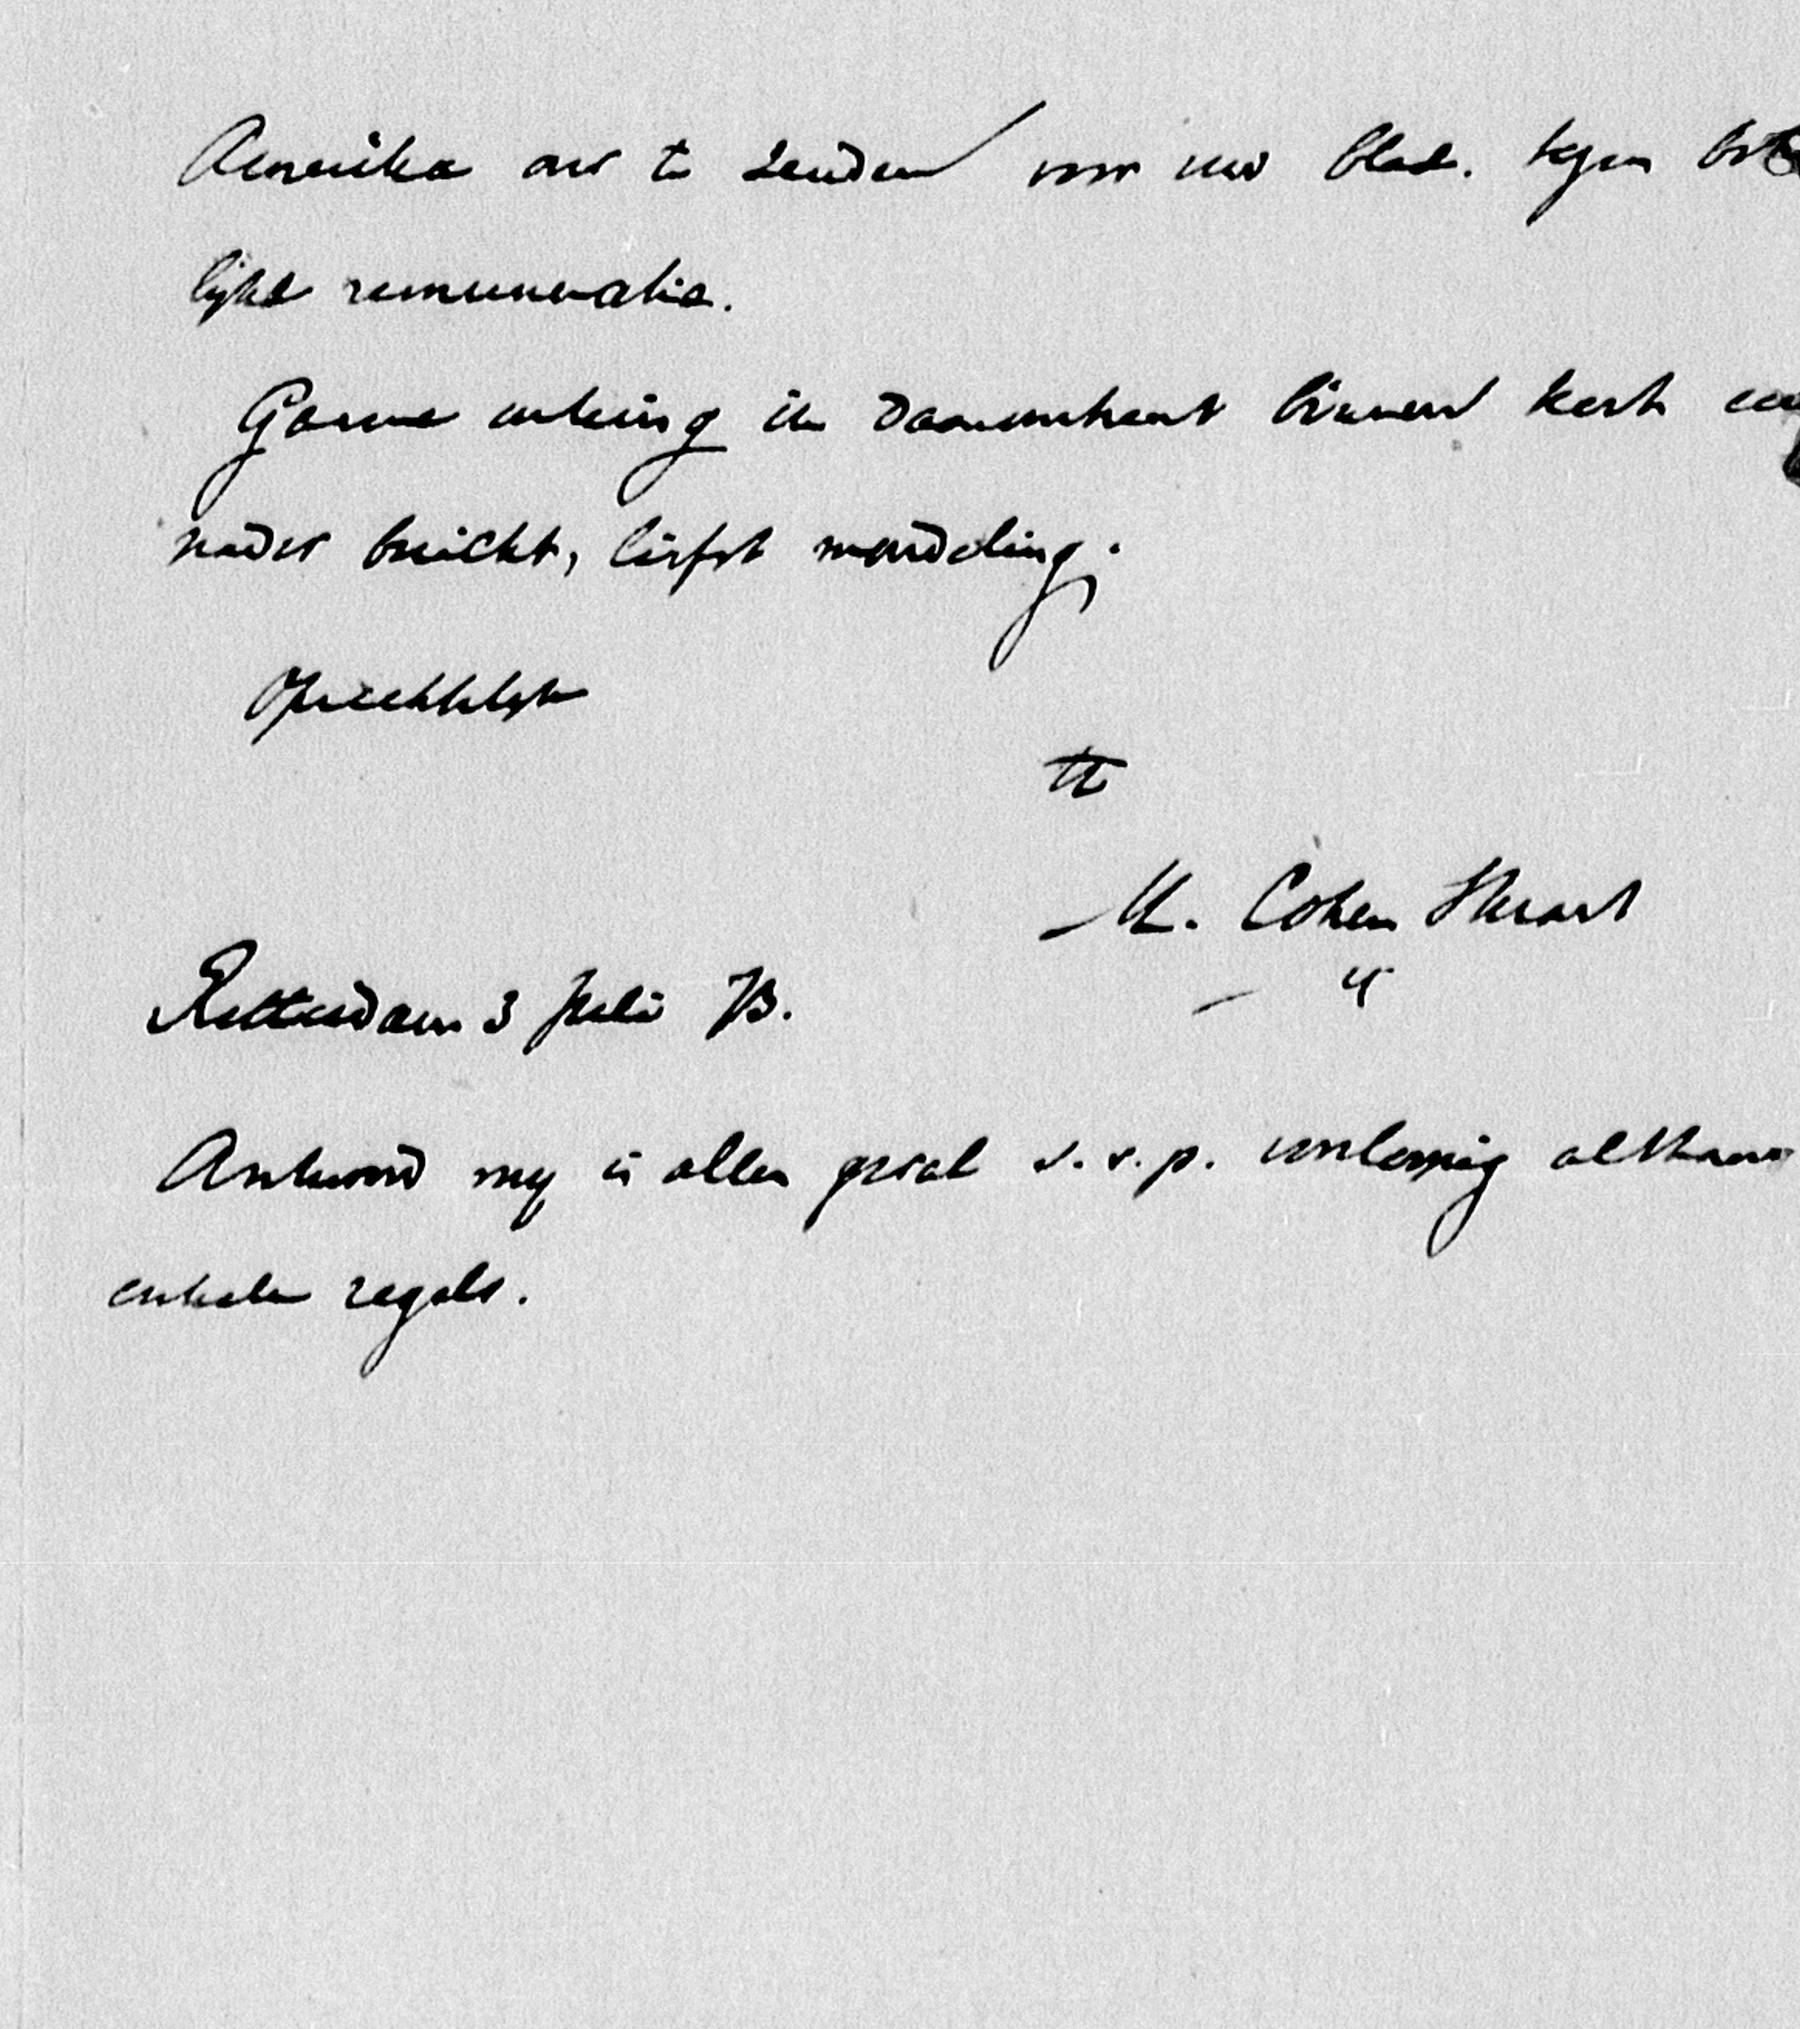 Amerika over te zenden voor uw blad. tegen
lijke remuneratie.
Gaarne ontving ik daaromtrent binnen kort een
nader bericht, liefst mondeling.
Oprechtelijk
tt
M. Cohen Stuart
Rotterdam 3 Juli 73.
Antwoord mij in allen geval s.v.p. voorloopig althans
enkele regels.